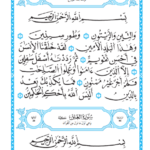 بِسْمِ اللَّهِ الرَّحْمَٰنِ الرَّحِيمِ
وَالتِّينِ وَالزَّيْتُونِ وَطُورِ سِينِينَ
وَهَٰذَا الْبَلَدِ الْأَمِينِ لَقَدْ خَلَقْنَا الْإِنسَانَ
فِي أَحْسَنِ تَقْوِيمٍ ثُمَّ رَدَدْنَاهُ أَسْفَلَ سَافِلِينَ
إِلَّا الَّذِينَ آمَنُوا وَعَمِلُوا الصَّالِحَاتِ
فَلَهُمْ أَجْرٌ غَيْرُ مَمْنُونٍ فَمَا يُكَذِّبُكَ بَعْدُ
بِالدِّينِ أَلَيْسَ اللَّهُ بِأَحْكَمِ الْحَاكِمِينَ
سُورَةُ الْعَلَقِ
بِسْمِ اللَّهِ الرَّحْمَٰنِ الرَّحِيمِ